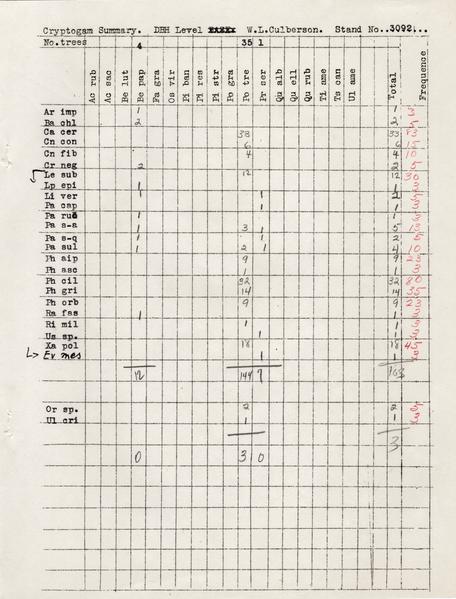 Cryptogam Summary. DBH Level W.L.Culberson. Stand No..3092...
No.trees 4 35 1
Ac rub Ac sac Be lut Be pap Fa gra Os vir Pi ban Pi res Pi str Po gra Po tre Pr ser Qu alb Qu ell Qu rub Ti ame Ts can Ul ame Total Frequence
Ar imp 1 1
Ba chl 2 2
Ca cer 33 33
Cn con 6 6
Cn fib 4 4 10
Cr neg 2 2
Le sub 12 12 30
Lp epi 1 1
Li ver 1 1 2
Pa cap 1 1
Pa rud 1 1
Pa s-a 1 3 1 5
Pa s-q 1 1 2
Pa sul 1 2 1 4 10
Ph aip 9 9
Ph asc 1 1
Ph cil 32 32 80
Ph gri 14 14 35
Ph orb 9 9
Ra fas 1 1
Ri mil 1 1
Us sp. 1 1
Xa pol 18 18
Ev mes 1 1
12 144 7 163
Or sp. 2 2
Ul cri 1 1
3
0 3 0